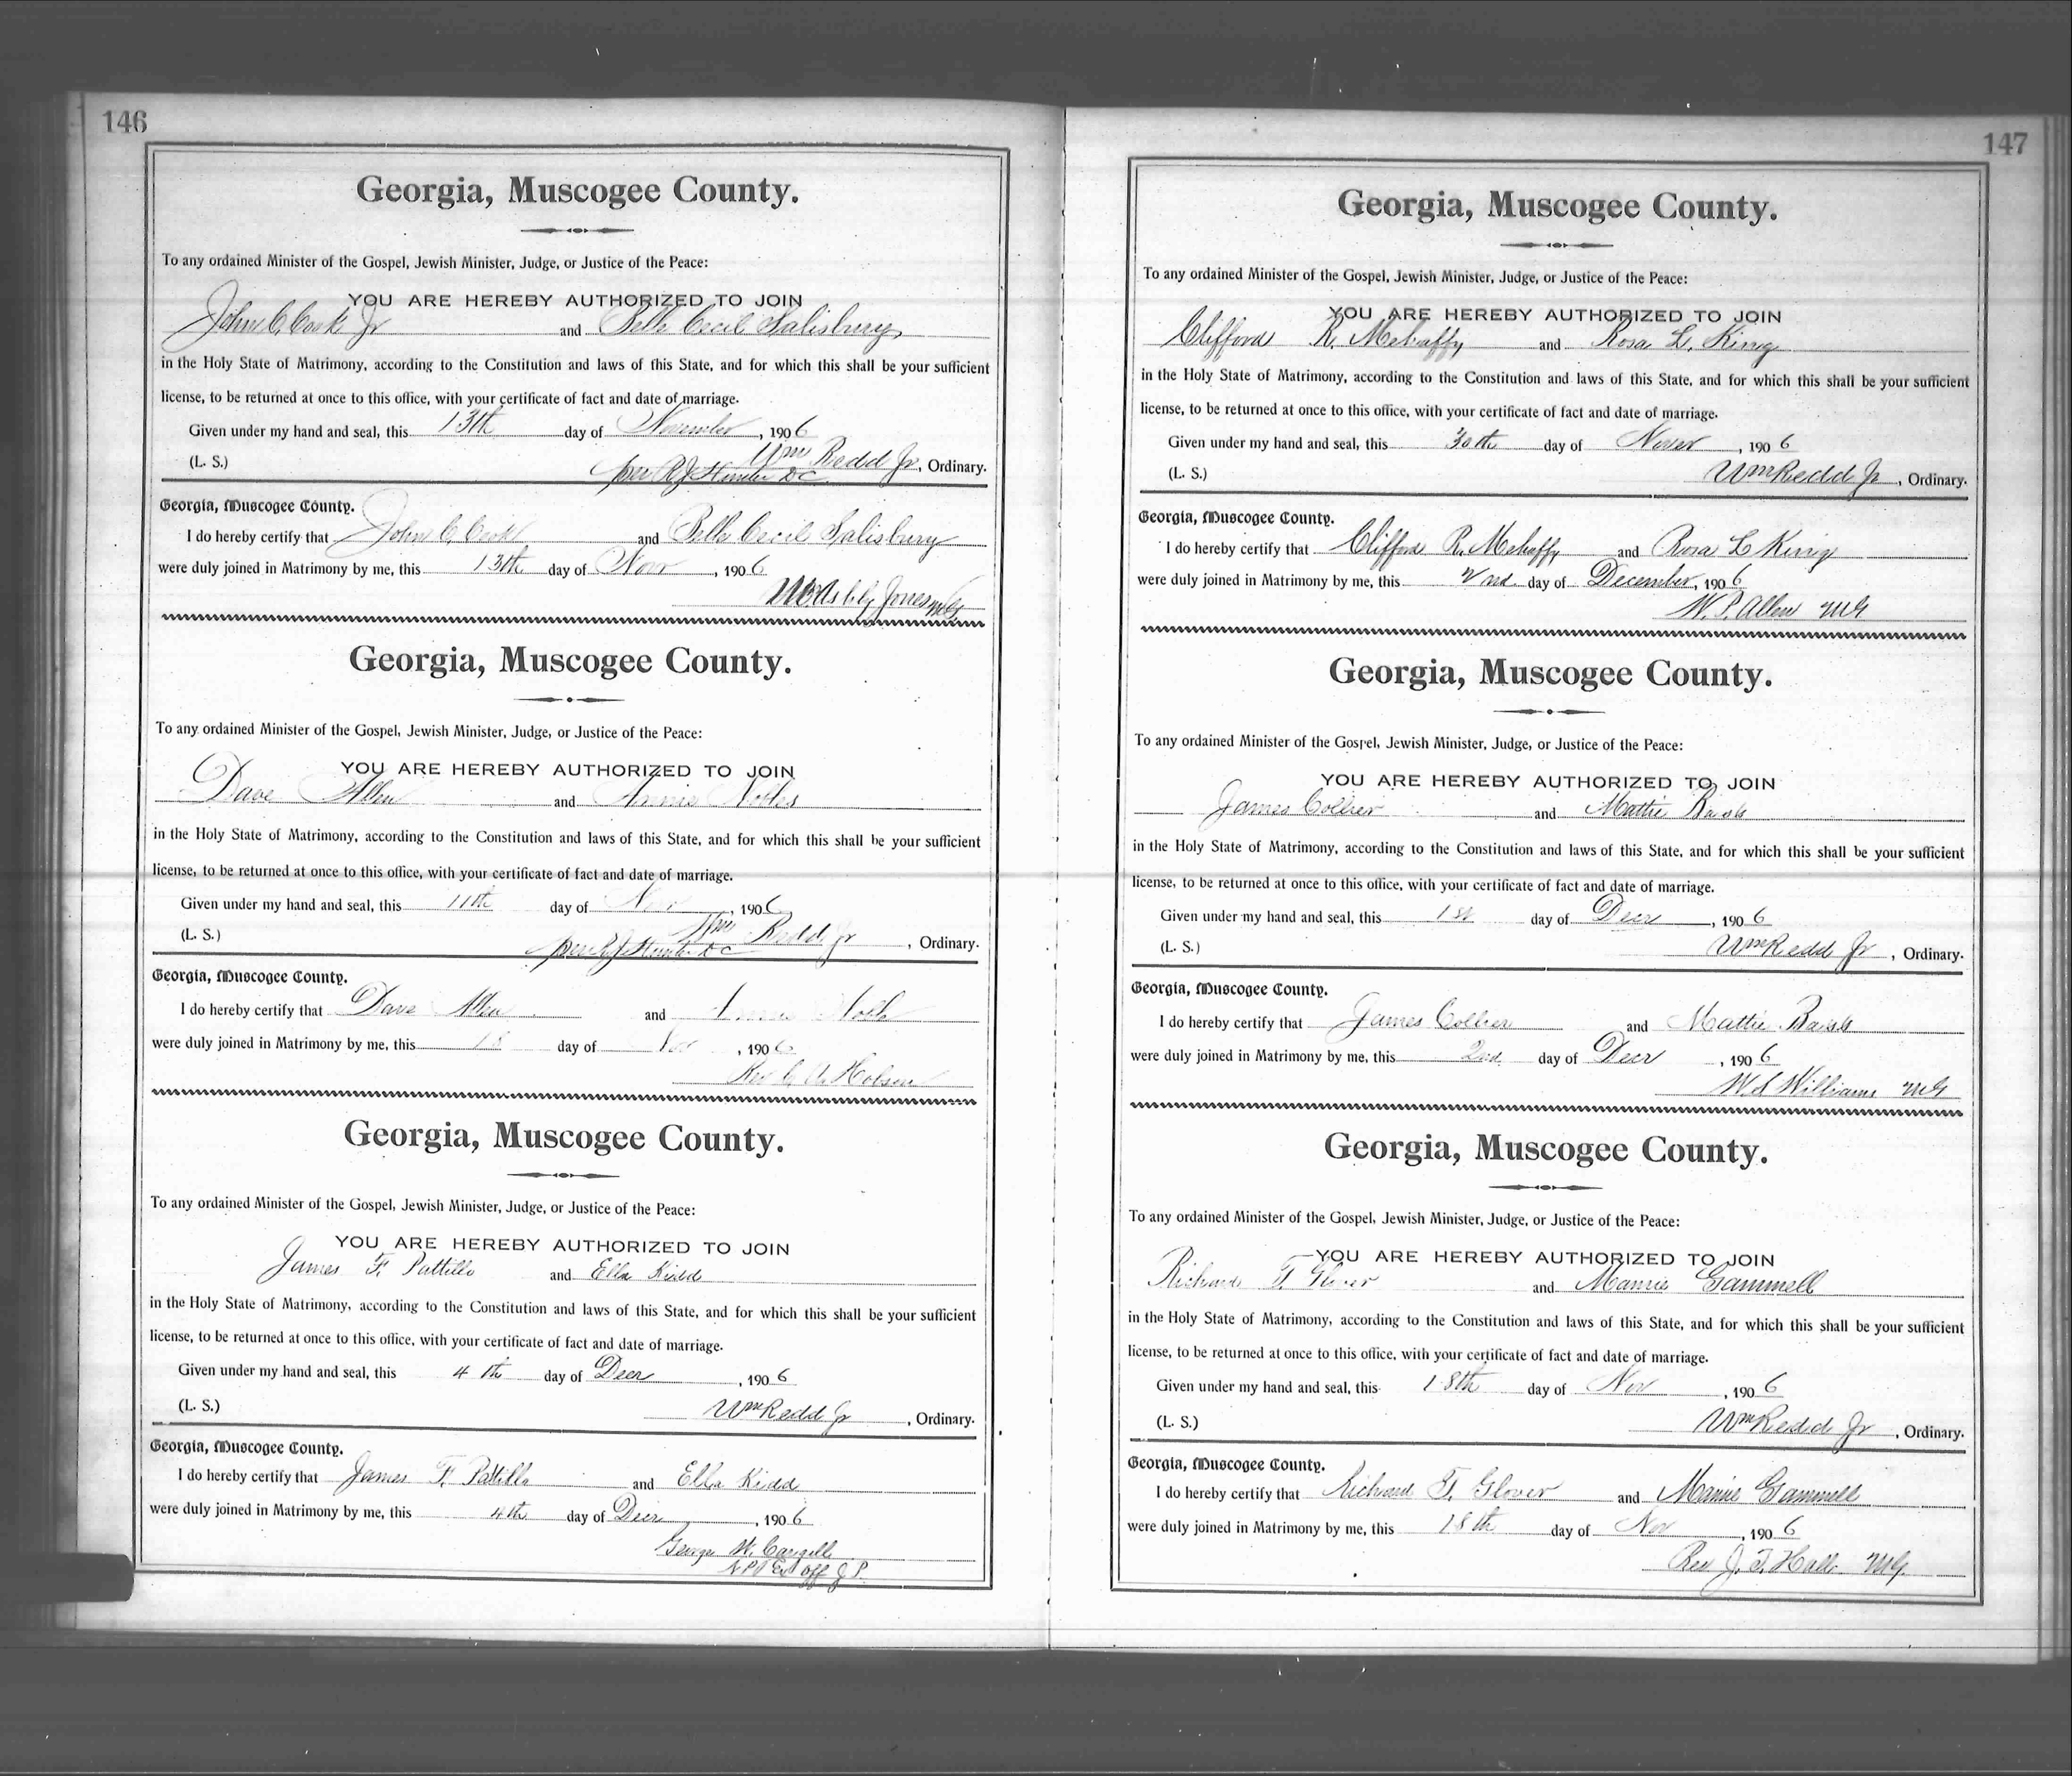 146
Georgia, Muscogee County.
To any ordained Minister of the Gospel, Jewish Minister, Judge, or Justice of the Peace:
YOU ARE HEREBY AUTHORIZED TO JOIN
John C. Cook Jr and Belle Cecil Salisbury
in the Holy State of Matrimony, according to the Constitution and laws of this State, and for which this shall be your sufficient
license, to be returned at once to this office, with your certificate of fact and date of marriage.
Given under my hand and seal, this 13th day of November, 1906
(L. S.) Wm Redd Jr, Ordinary.
per R J Hunter DC
Georgia, Muscogee County.
I do hereby certify that John C. Cook and Belle Cecil Salisbury
were duly joined in Matrimony by me, this 13th day of Novr, 1906
Ashby Jones MG
Georgia, Muscogee County.
To any ordained Minister of the Gospel, Jewish Minister, Judge, or Justice of the Peace:
YOU ARE HEREBY AUTHORIZED TO JOIN
Dave Allen and Annie Nobles
in the Holy State of Matrimony, according to the Constitution and laws of this State, and for which this shall be your sufficient
license, to be returned at once to this office, with your certificate of fact and date of marriage.
Given under my hand and seal, this 17th day of Nov, 1906
(L. S.) Wm Redd Jr, Ordinary.
per R J Hunter DC
Georgia, Muscogee County.
I do hereby certify that Dave Allen and Annie Noble
were duly joined in Matrimony by me, this 18 day of Nov, 1906
Rev C. A. Hobson
Georgia, Muscogee County.
To any ordained Minister of the Gospel, Jewish Minister, Judge, or Justice of the Peace:
YOU ARE HEREBY AUTHORIZED TO JOIN
James F. Pattillo and Ella Kidd
in the Holy State of Matrimony, according to the Constitution and laws of this State, and for which this shall be your sufficient
license, to be returned at once to this office, with your certificate of fact and date of marriage.
Given under my hand and seal, this 4th day of Decr, 1906
(L. S.) Wm Redd Jr, Ordinary.
Georgia, Muscogee County.
I do hereby certify that James F. Pattillo and Ella Kidd
were duly joined in Matrimony by me, this 4th day of Decr, 1906
George W. Cargill
N P & Ex off J. P.
147
Georgia, Muscogee County.
To any ordained Minister of the Gospel, Jewish Minister, Judge, or Justice of the Peace:
YOU ARE HEREBY AUTHORIZED TO JOIN
Clifford R. Mehaffy and Rosa L. King
in the Holy State of Matrimony, according to the Constitution and laws of this State, and for which this shall be your sufficient
license, to be returned at once to this office, with your certificate of fact and date of marriage.
Given under my hand and seal, this 30th day of Novr, 1906
(L. S.) Wm Redd Jr, Ordinary.
Georgia, Muscogee County.
I do hereby certify that Clifford R. Mehaffy and Rosa L King
were duly joined in Matrimony by me, this 2nd day of December, 1906
W. P. Allen MG
Georgia, Muscogee County.
To any ordained Minister of the Gospel, Jewish Minister, Judge, or Justice of the Peace:
YOU ARE HEREBY AUTHORIZED TO JOIN
James Collier and Mattie
in the Holy State of Matrimony, according to the Constitution and laws of this State, and for which this shall be your sufficient
license, to be returned at once to this office, with your certificate of fact and date of marriage.
Given under my hand and seal, this 1st day of Decr, 1906
(L. S.) Wm Redd Jr, Ordinary.
Georgia, Muscogee County.
I do hereby certify that James Collier and Mattie
were duly joined in Matrimony by me, this 2nd day of Decr, 1906
W. S Williams MG
Georgia, Muscogee County.
To any ordained Minister of the Gospel, Jewish Minister, Judge, or Justice of the Peace:
YOU ARE HEREBY AUTHORIZED TO JOIN
Richard T. Glover and Mamie Gammell
in the Holy State of Matrimony, according to the Constitution and laws of this State, and for which this shall be your sufficient
license, to be returned at once to this office, with your certificate of fact and date of marriage.
Given under my hand and seal, this 18th day of Nov, 1906
(L. S.) Wm Redd Jr, Ordinary.
Georgia, Muscogee County.
I do hereby certify that Richard T. Glover and Mamie Gammell
were duly joined in Matrimony by me, this 18th day of Nov, 1906
Rev J. T. Hall MG